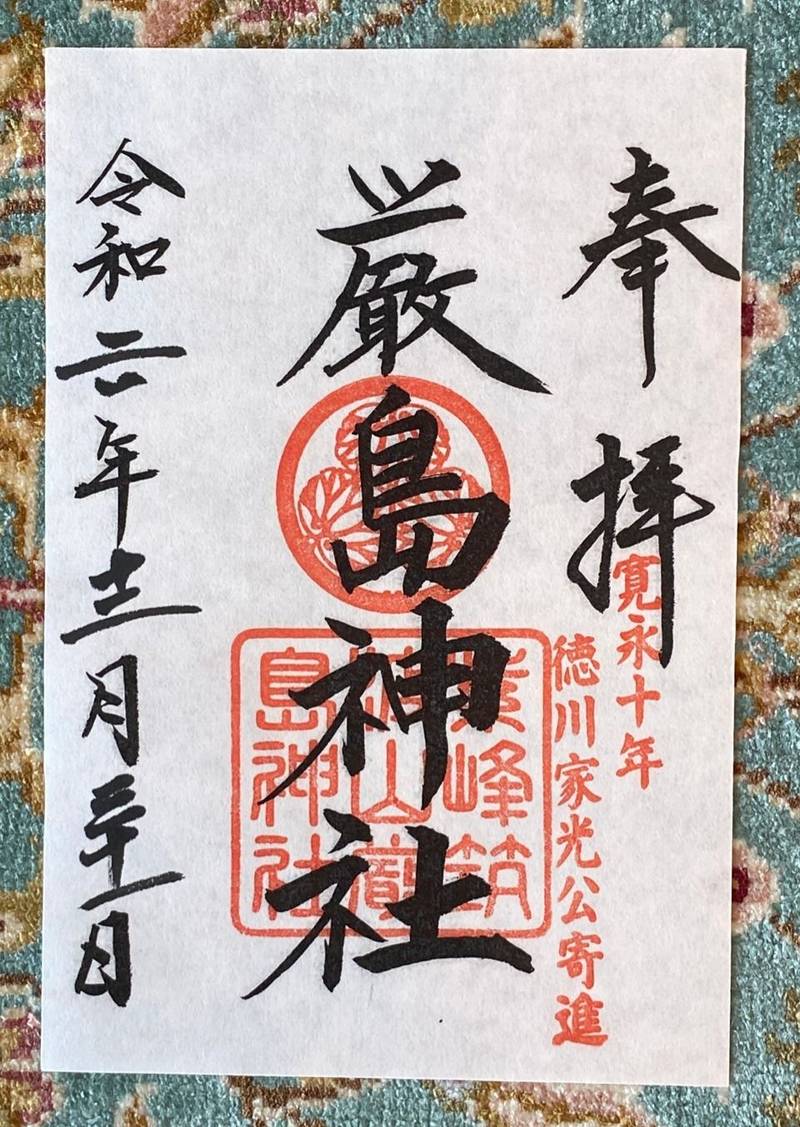 奉拝
寛永十年
徳川家光公寄進
厳島神社
峰筑
山嚴
島神社
令和六年十二月三十一日